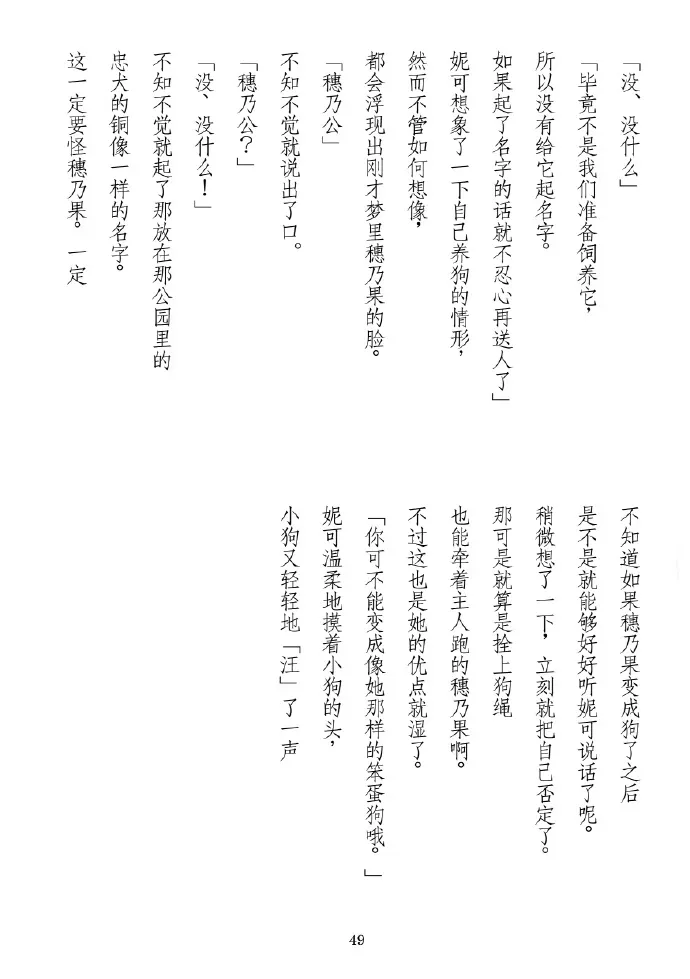 「没、没什么」
「毕竟不是我们准备饲养它，
所以没有给它起名字。
如果起了名字的话就不忍心再送人了」
妮可想象了一下自己养狗的情形，
然而不管如何想像，
都会浮现出刚才梦里穗乃果的脸。
「穗乃公」
不知不觉就说出了口。
「穗乃公？」
「没、没什么！」
不知不觉就起了那放在那公园里的
忠犬的铜像一样的名字。
这一定要怪穗乃果。一定
不知道如果穗乃果变成狗了之后
是不是就能够好好听妮可说话了呢。
稍微想了一下，立刻就把自己否定了。
那可是就算是拴上狗绳
也能牵着主人跑的穗乃果啊。
不过这也是她的优点就湿了。
「你可不能变成像她那样的笨蛋狗哦。」
妮可温柔地摸着小狗的头，
小狗又轻轻地「汪」了一声
49